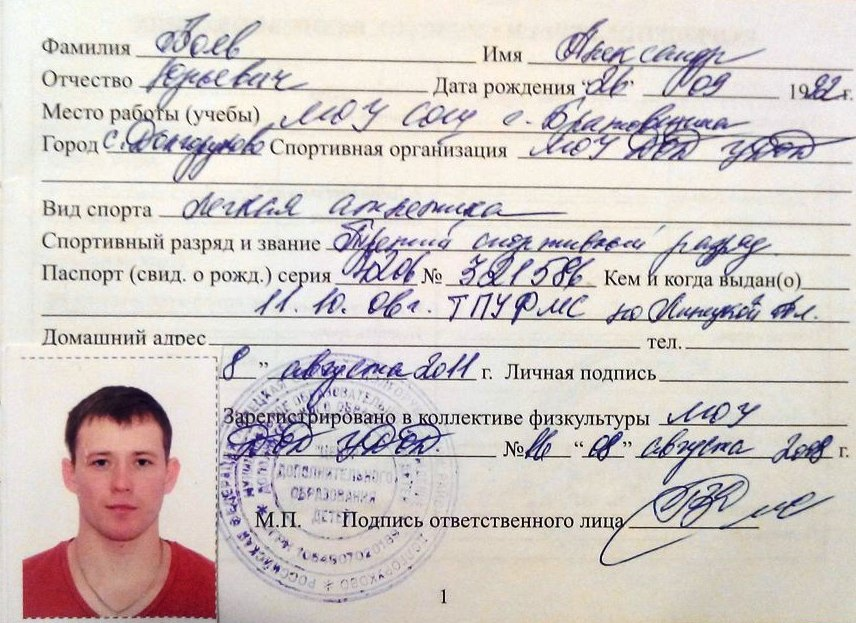 Фамилия Боев Имя Александр
Отчество Юрьевич Дата рождения "26" 09 1992 г.
Место работы (учебы) МОУ СОШ с. Братовщина
Город с. Долгоруково Спортивная организация МОУ ДОД
Вид спорта легкая атлетика
Спортивный разряд и звание Третий спортивный разряд.
Паспорт (свид. о рожд.) серия 4206 № 321586 Кем и когда выдан(о)
11.10.06г. ТПУФМС по Липецкой обл.
Домашний адрес тел.
8 " августа 2011 г. Личная подпись
Зарегистрировано в коллективе физкультуры МОУ
ДОД №16 "08" августа 2008 г.
ДОПОЛНИТЕЛЬНОГО
ОБРАЗОВАНИЯ
ДЕТЕЙ
М.П. Подпись ответственного лица
1